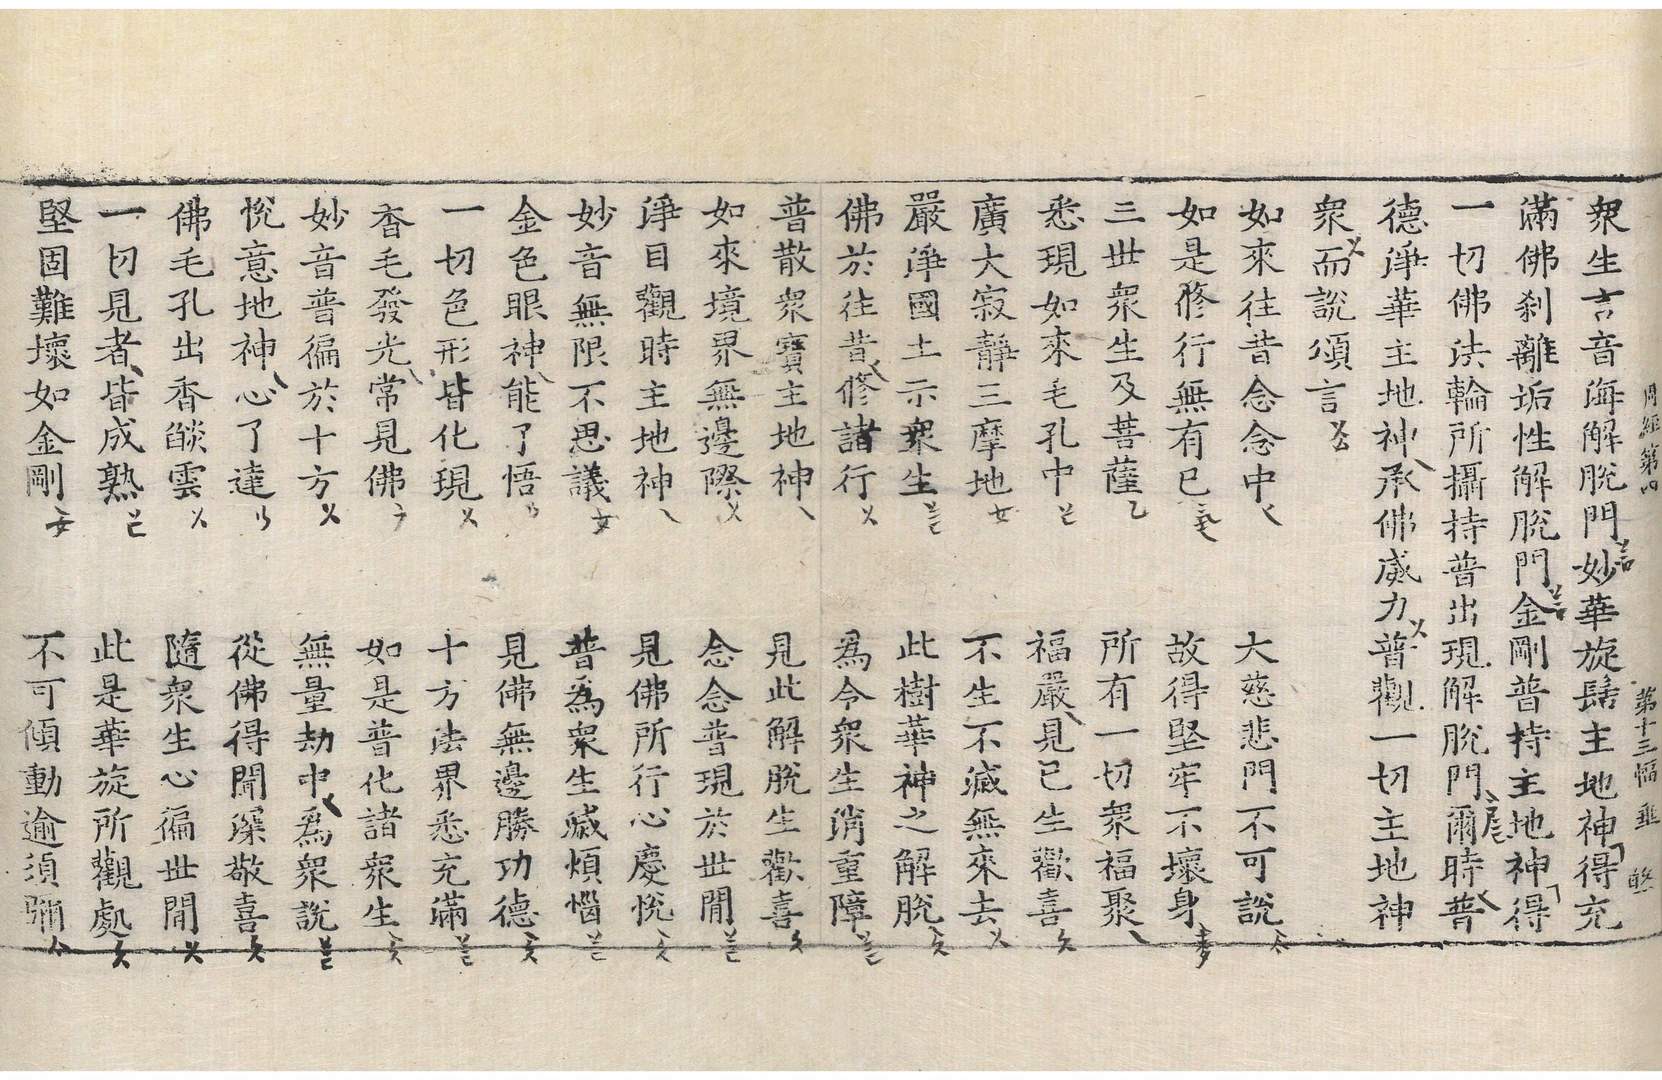 周經第四 第十三幅 垂
衆生言音海解脫門妙華旋髻主地神得充
滿佛刹離垢性解脫門金剛普持主地神得
一切佛法輪所攝持普出現解脫門爾時普
德淨華主地神承佛威力普觀一切主地神
衆而說頌言
如來往昔念念中 大慈悲門不可說
如是修行無有已 故得堅牢不壞身
三世衆生及菩薩 所有一切衆福聚
悉現如來毛孔中 福嚴見已生歡喜
廣大寂靜三摩地 不生不滅無來去
嚴淨國土示衆生 此樹華神之解脫
佛於往昔修諸行 爲令衆生消重障
普散衆寶主地神 見此解脫生歡喜
如來境界無邊際 念念普現於世閒
淨目觀時主地神 見佛所行心慶悅
妙音無限不思議 普爲衆生滅煩惱
金色眼神能了悟 見佛無邊勝功德
一切色形皆化現 十方法界悉充滿
香毛發光常見佛 如是普化諸衆生
妙音普徧於十方 無量劫中爲衆說
悅意地神心了達 從佛得聞深敬喜
佛毛孔出香焰雲 隨衆生心徧世閒
一切見者皆成熟 此是華旋所觀處
堅固難壞如金剛 不可傾動逾須彌